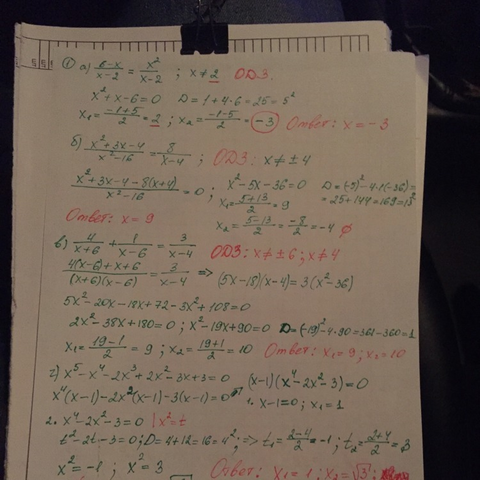 ① а) (6-x)/(x-2) = x²/(x-2) ; x ≠ 2 ОДЗ.
x² + x - 6 = 0 D = 1 + 4·6 = 25 = 5²
x₁ = (-1+5)/2 = 2 ; x₂ = (-1-5)/2 = -3 Ответ: x = -3
б) (x²+3x-4)/(x²-16) = 8/(x-4) ; ОДЗ: x ≠ ±4
(x²+3x-4-8(x+4))/(x²-16) = 0 ; x² - 5x - 36 = 0 D = (-5)² - 4·1·(-36) =
x₁ = (5+13)/2 = 9 = 25 + 144 = 169 = 13²
Ответ: x = 9 x₂ = (5-13)/2 = -8/2 = -4 ∅
в) 4/(x+6) + 1/(x-6) = 3/(x-4) ОДЗ: x ≠ ±6 ; x ≠ 4
(4(x-6)+x+6)/((x+6)(x-6)) = 3/(x-4) => (5x-18)(x-4) = 3(x²-36)
5x² - 20x - 18x + 72 - 3x² + 108 = 0
2x² - 38x + 180 = 0 ; x² - 19x + 90 = 0 D = (-19)² - 4·90 = 361 - 360 = 1
x₁ = (19-1)/2 = 9 ; x₂ = (19+1)/2 = 10 Ответ: x₁ = 9 ; x₂ = 10
г) x⁵ - x⁴ - 2x³ + 2x² - 3x + 3 = 0 (x-1)(x⁴-2x²-3) = 0
x⁴(x-1) - 2x²(x-1) - 3(x-1) = 0 1. x-1=0 ; x₁ = 1
2. x⁴ - 2x² - 3 = 0 | x² = t
t² - 2t - 3 = 0 ; D = 4 + 12 = 16 = 4² ; => t₁ = (2-4)/2 = -1 ; t₂ = (2+4)/2 = 3
x² = -1 ; x² = 3 Ответ: x₁ = 1 ; x₂ = √3 ;